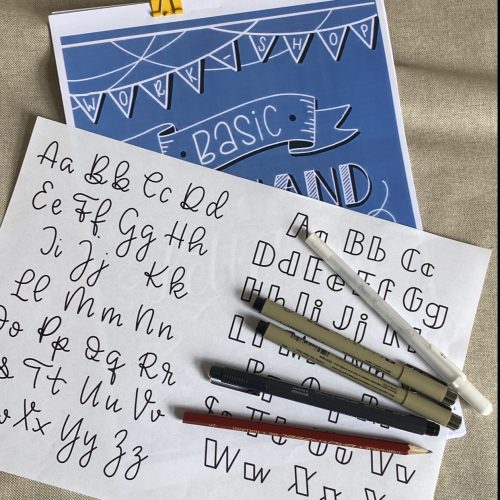 WORKSHOP
Basic
Aa Bb Cc Dd
Ee Ff Gg Hh
Ii Jj Kk
Ll Mm Nn
Pp Qq Rr
Tt Uu Vv
Xx Yy Zz
Aa Bb Cc
Dd Ee Ff Gg
Hh Ii Jj
Ww Xx